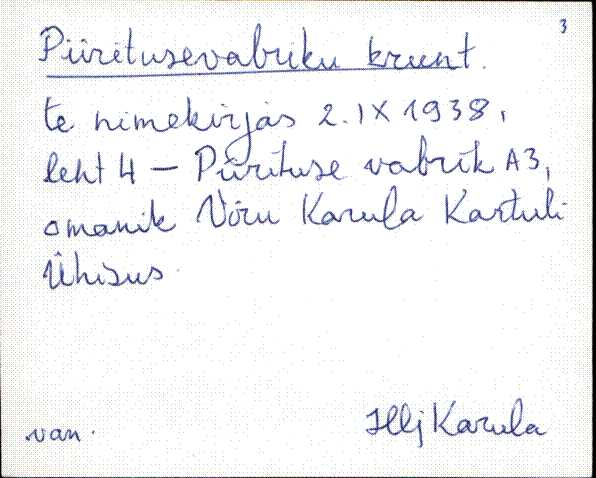 3
Piiritusevabriku krunt.
te nimekirjas 2.IX 1938,
leht 4 – Piirituse vabrik A3,
omanik Võru Karula Kartuli-
Ühisus.
van. Hlj Karula